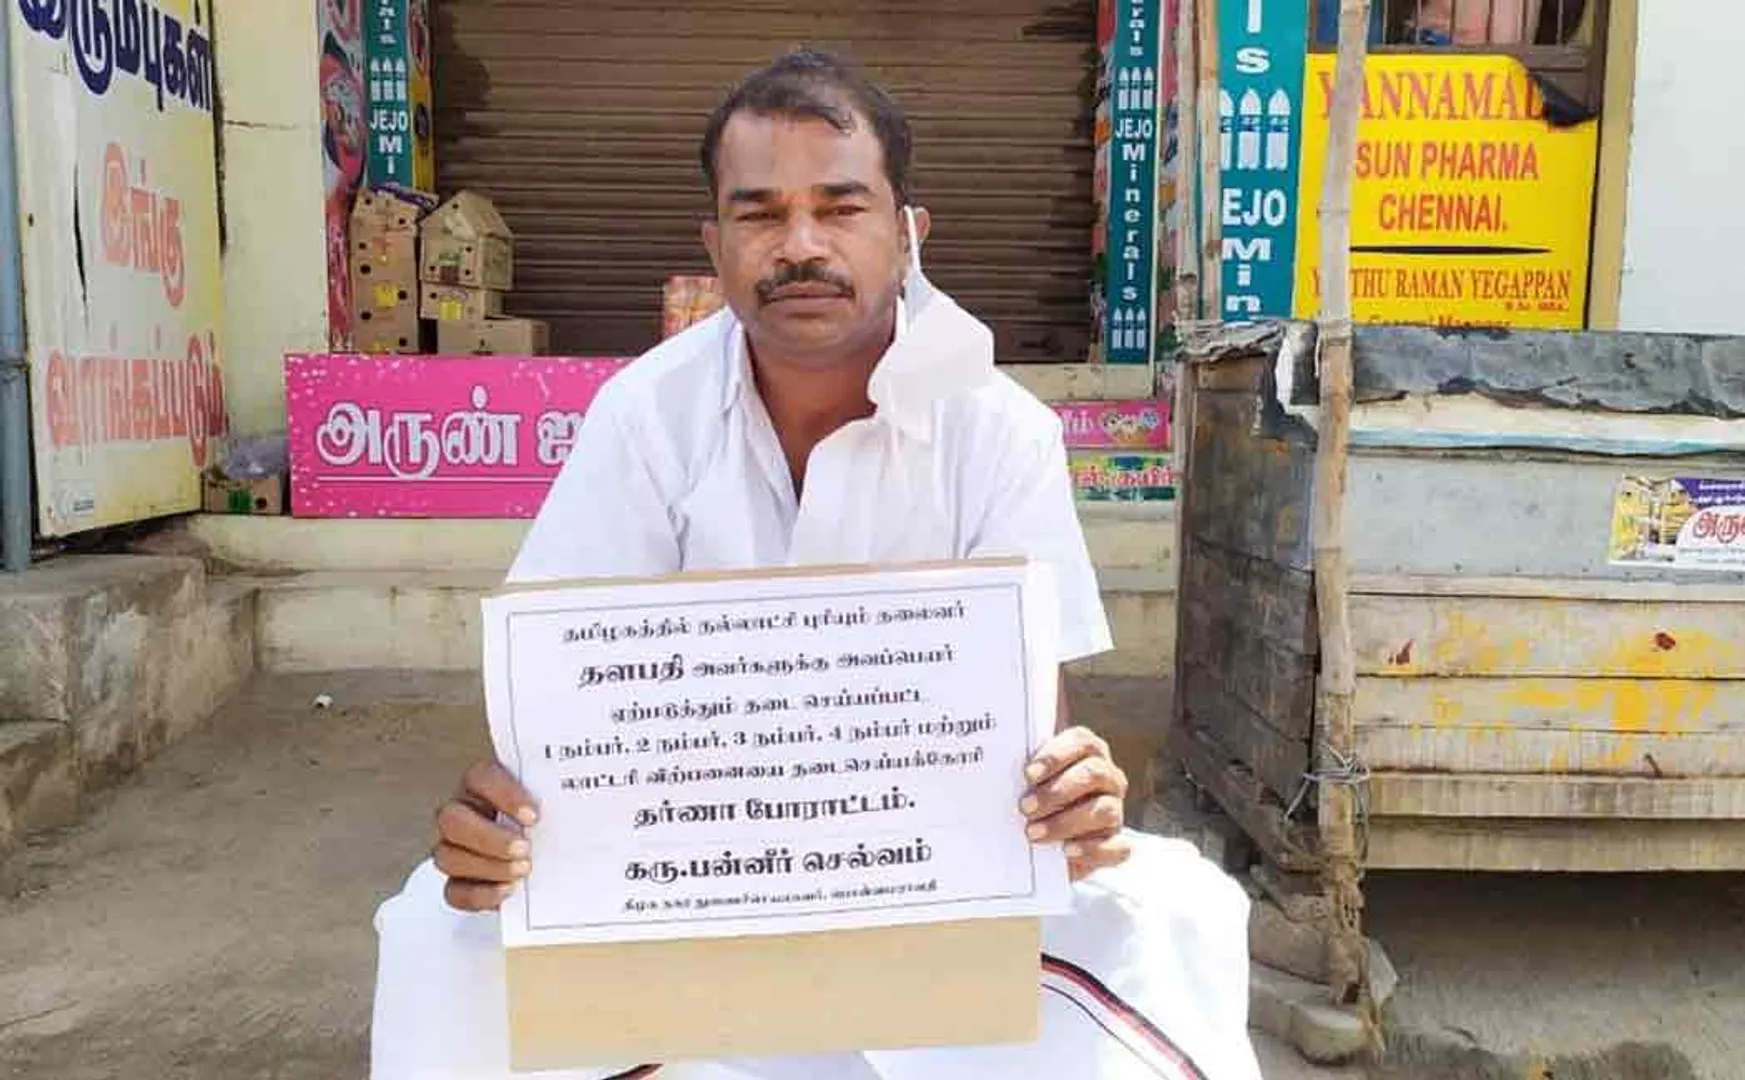 இரும்புகள்
இங்கு
வாங்கப்படும்
JEJO
Mi
JEJO
Minerals
EJO
Min
SUN PHARMA
CHENNAI.
RAMAN YEGAPPAN
அருண் ஐ
தமிழகத்தில் நல்லாட்சி புரியும் தலைவர்
தளபதி அவர்களுக்கு அவப்பெயர்
ஏற்படுத்தும் தடை செய்யப்பட்ட
1 நம்பர், 2 நம்பர், 3 நம்பர், 4 நம்பர் மற்றும்
லாட்டரி விற்பனையை தடைசெய்யக்கோரி
தர்ணா போராட்டம்.
கரு.பன்னீர் செல்வம்
திமுக நகர துணைசெயலாளர், பொன்னமராவதி